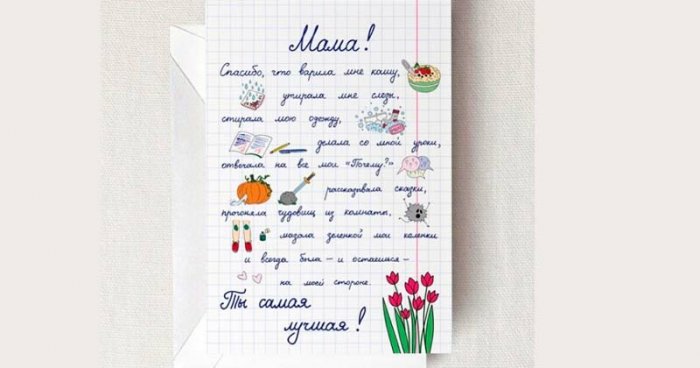 Мама!
Спасибо, что варила мне кашу,
утирала мне слёзы,
стирала мою одежду,
делала со мной уроки,
отвечала на все мои "Почему?"
рассказывала сказки,
прогоняла чудовищ из комнаты,
мазала зеленкой мои коленки
и всегда была – и остаёшься –
на моей стороне.
Ты самая
лучшая!